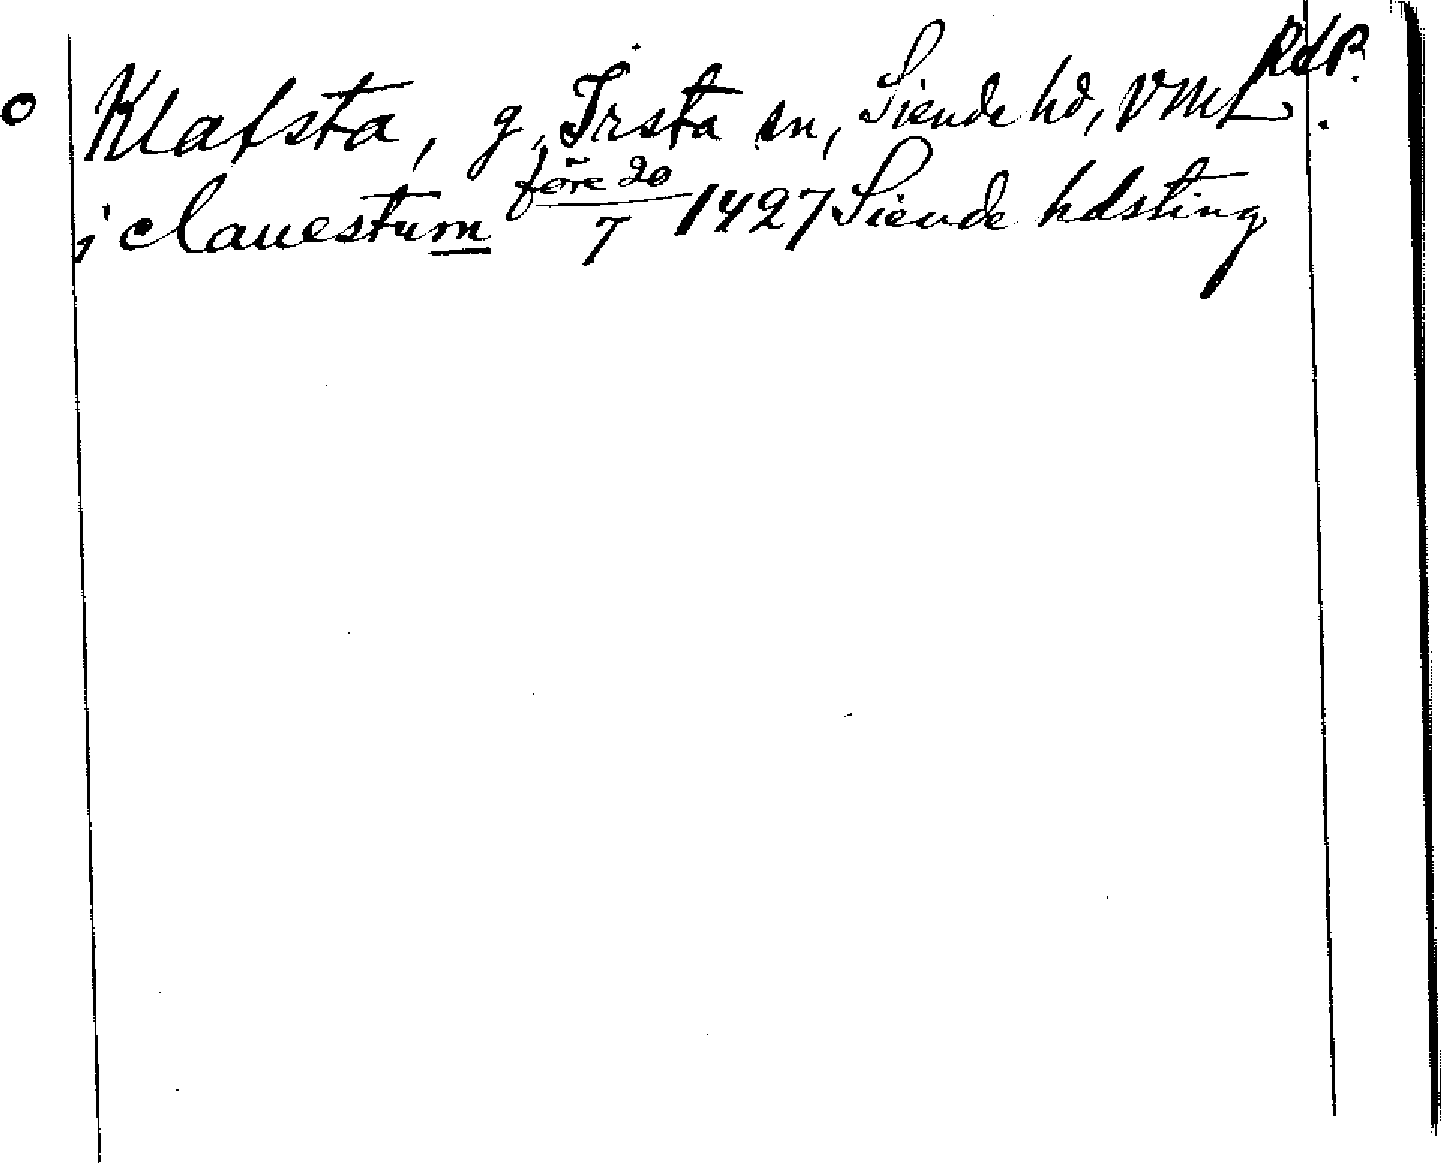 RdP.
o Klafsta, g, Irsta sn, Siende hd, VmL.
j clauestum före 20/7 1427 Siende hdsting